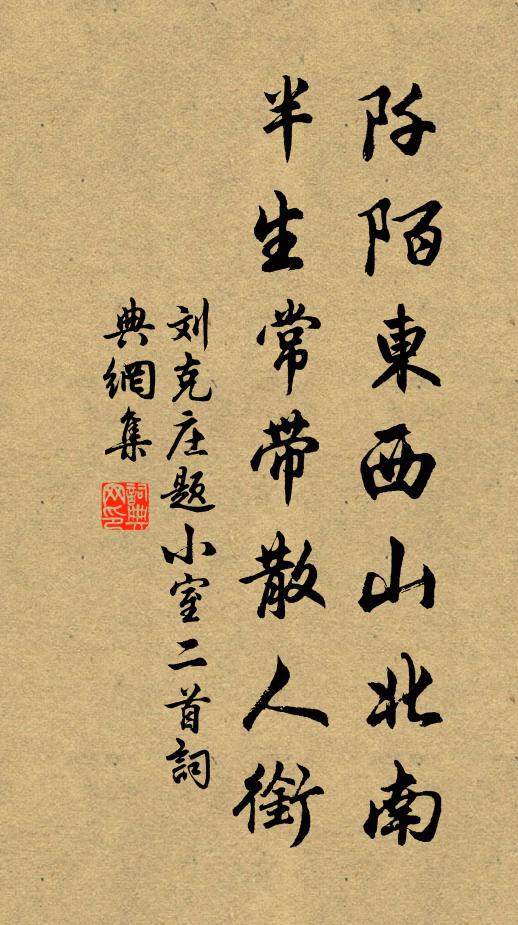 阡陌東西山北南
半生常带散人銜
刘克庄题小室二首詞
典網集
詞典
网印